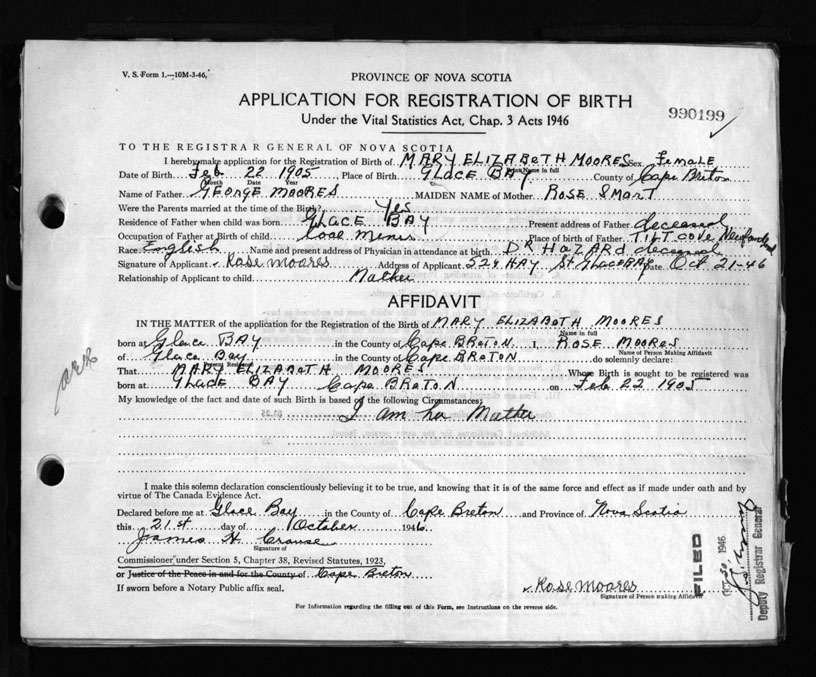 V. S. Form 1.—10M-3-46,
PROVINCE OF NOVA SCOTIA
APPLICATION FOR REGISTRATION OF BIRTH
990199
Under the Vital Statistics Act, Chap. 3 Acts 1946
TO THE REGISTRAR GENERAL OF NOVA SCOTIA
I hereby make application for the Registration of Birth of MARY ELIZABOTH MOORES Sex FEMALE
Name in full
Date of Birth Feb 22 1905 Place of Birth GLACE BAY County of Cape Breton
Month Date Year
Name of Father GEORGE MOORES MAIDEN NAME of Mother ROSE SMART
Were the Parents married at the time of the Birth? Yes
Residence of Father when child was born GLACE BAY Present address of Father deceased
Occupation of Father at Birth of child Coal Miner Place of birth of Father TILT COVE Newfoundland
Race English Name and present address of Physician in attendance at birth DR HAZARD deceased
Signature of Applicant Rose Moores Address of Applicant 524 HAY St GLACE BAY Date Oct 21-46
Relationship of Applicant to child Mother
AFFIDAVIT
IN THE MATTER of the application for the Registration of the Birth of MARY ELIZABOTH MOORES
Name in full
born at Glace BAY in the County of Cape BRETON I, ROSE MOORES
Name of Person Making Affidavit
of Glace Bay in the County of Cape BRETON do solemnly declare:
That MARY ELIZABOTH MOORES Whose Birth is sought to be registered was
born at GLACE BAY Cape BRETON on Feb 22 1905
My knowledge of the fact and date of such Birth is based of the following Circumstances:
I am her Mother
I make this solemn declaration conscientiously believing it to be true, and knowing that it is of the same force and effect as if made under oath and by
virtue of The Canada Evidence Act.
Declared before me at Glace Bay in the County of Cape Breton and Province of Nova Scotia
this 21st day of October 1946
James H Crouse
Signature of
Commissioner under Section 5, Chapter 38, Revised Statutes, 1923,
or Justice of the Peace in and for the County of Cape Breton
If sworn before a Notary Public affix seal.
Rose Moores
Signature of Person making Affidavit
For Information regarding the filling out of this Form, see Instructions on the reverse side.
FILED
30 1946
Deputy Registrar General